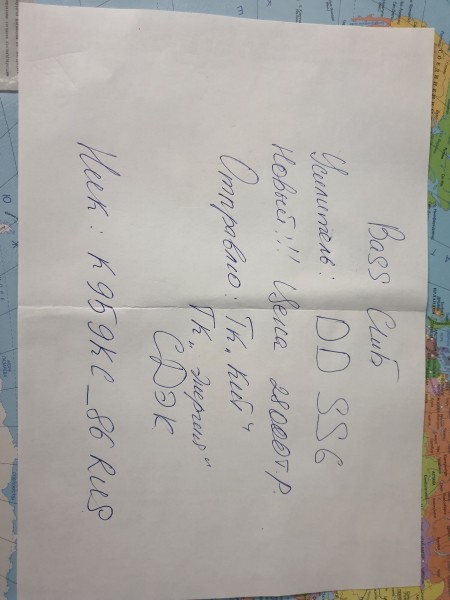 Bass Club
Усилитель: DD SS6
Новый!!! Цена 28000т.р.
Отправлю: ТК „Кит“
ТК „Энергия“
СДЭК
Ник: